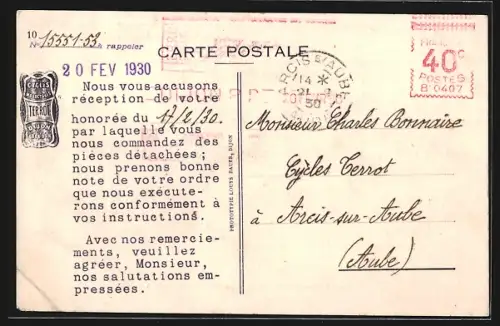 10
No 15551-53 à rappeler
CARTE POSTALE
20 FEV 1930
40c
POSTES
B 0407
ARCIS S/AUBE
14
21
30
TERROT
Nous vous accusons
réception de votre
honorée du 17/2/30.
par laquelle vous
nous commandez des
pièces détachées ;
nous prenons bonne
note de votre ordre
que nous exécute-
rons conformément à
vos instructions.
Avec nos remercie-
ments, veuillez
agréer, Monsieur,
nos salutations em-
pressées.
PHOTOTYPIE LOUIS BAUER, DIJON
Monsieur Charles Bonnaire
Cycles Terrot
à Arcis-sur-Aube
(Aube)